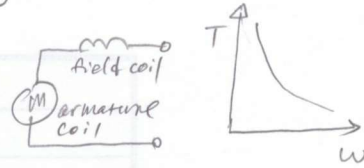 field coil
M
armature
coil
T
ω